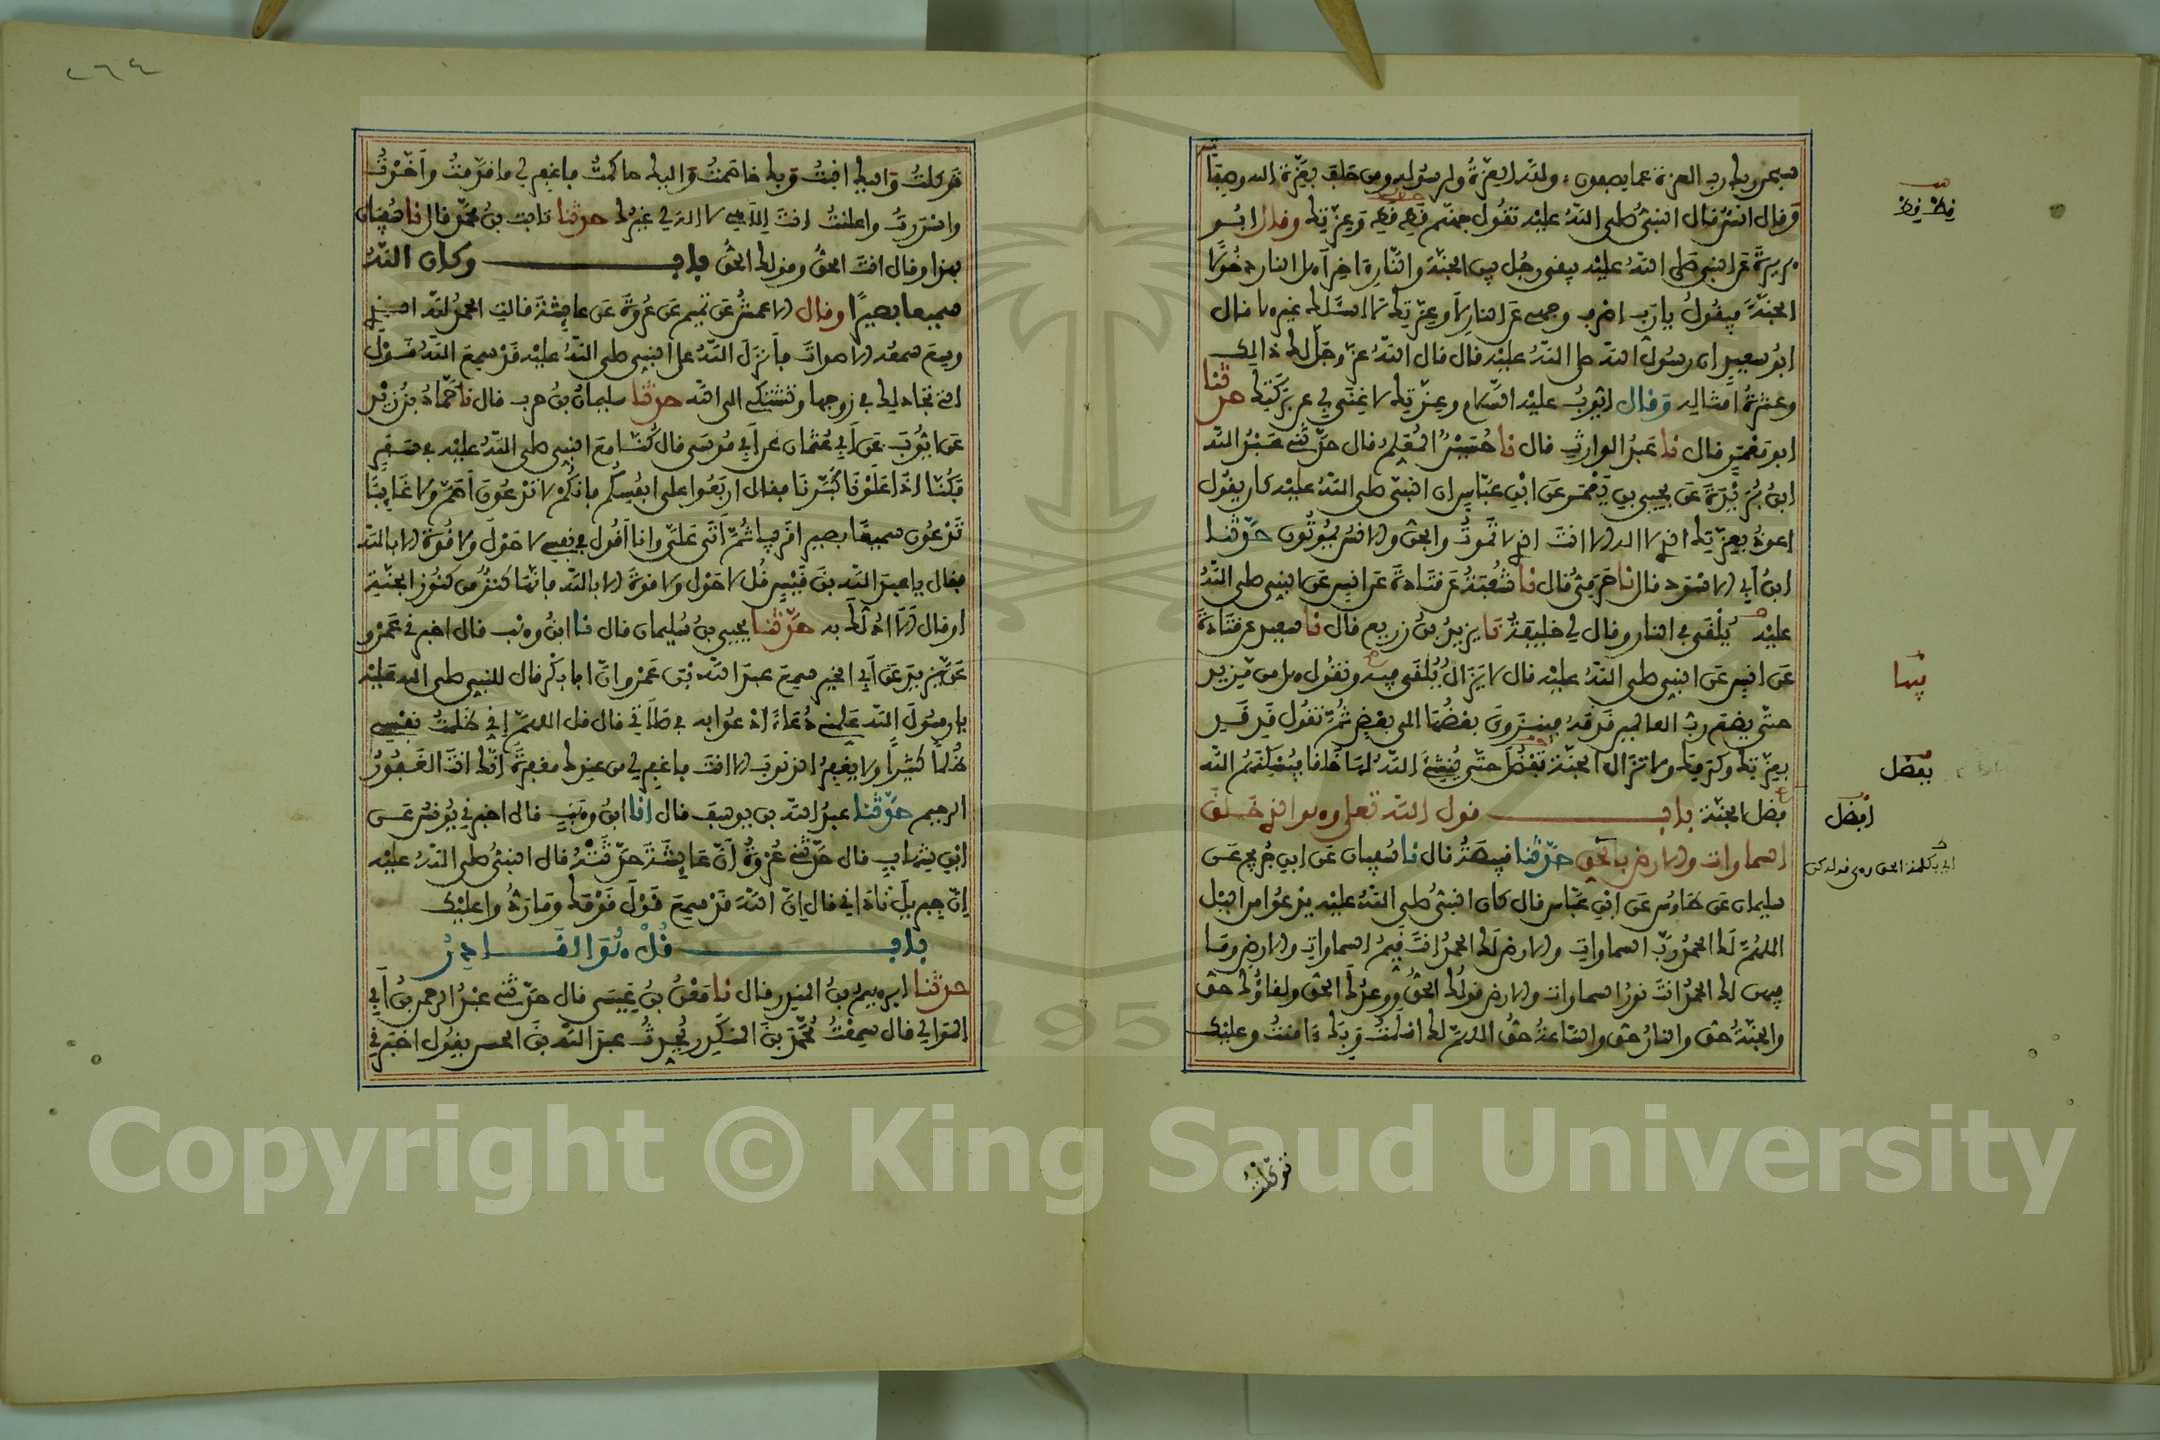 سبحن ربك رب العزة عما يصفون ولله العزة ولرسوله ومن حلف بعزة الله وصفاته
وقال انس قال النبي صلى الله عليه تقول جهنم قط قط وعزتك وقال ابو
هريرة عن النبي صلى الله عليه يبقى رجل بين الجنة والنار اخر اهل النار دخولا
الجنة فيقول يا رب اصرف وجهي عن النار لا وعزتك لا اسالك غيرها قال
ابو سعيد ان رسول الله صلى الله عليه قال قال الله عز وجل لك ذالك
وعشرة امثاله وقال ايوب عليه السلام وعزتك لا غنى بي عن بركتك حدثنا
ابو معمر قال نا عبد الوارث قال نا حسين المعلم قال حدثني عبد الله
ابن بريدة عن يحيى بن يعمر عن ابن عباس ان النبي صلى الله عليه كان يقول
اعوذ بعزتك الذي لا اله الا انت الذي لا تموت والجن والانس يموتون حدثنا
ابن ابي الاسود قال نا حرمي قال نا شعبة عن قتادة عن انس عن النبي صلى الله
عليه يلقى في النار وقال لي خليفة نا يزيد بن زريع قال نا سعيد عن قتادة
عن انس عن النبي صلى الله عليه قال لا يزال يلقى فيه وتقول هل من مزيد
حتى يضع رب العالمين قدمه فينزوي بعضها الى بعض ثم تقول قد قد
بعزتك وكرمك ولا تزال الجنة تفضل حتى ينشئ الله لها خلقا فيسكنهم الله
فضل الجنة باب قول الله تعلى وهو الذي خلق
السماوات والارض بالحق حدثنا قبيصة قال نا سفيان عن ابن جريج عن
سليمان عن طاوس عن ابن عباس قال كان النبي صلى الله عليه يدعوا من الليل
اللهم لك الحمد رب السماوات والارض لك الحمد انت قيم السماوات والارض وما
فيهن لك الحمد انت نور السماوات والارض قولك الحق ووعدك الحق ولقاؤك حق
والجنة حق والنار حق والساعة حق اللهم لك اسلمت وبك ءامنت وعليك
فيها
بفضل
افضل
توكلت
٢٦٤
توكلت واليك انبت وبك خاصمت واليك حاكمت فاغفر لي ما قدمت واخرت
واسررت واعلنت انت الاهي لا اله لي غيرك حدثنا ثابت بن محمد قال نا سفيان
بهذا وقال انت الحق وقولك الحق باب وكان الله
سميعا بصيرا وقال الاعمش عن تميم عن عروة عن عايشة قالت الحمد لله الذي
وسع سمعه الاصوات فانزل الله على النبي صلى الله عليه قد سمع الله قول
التي تجادلك في زوجها وتشتكي الى الله حدثنا سليمان بن حرب قال نا حماد بن زيد
عن ايوب عن ابي عثمان عن ابي موسى قال كنا مع النبي صلى الله عليه في سفر
فكنا اذا علونا كبرنا فقال اربعوا على انفسكم فانكم لا تدعون اصم ولا غايبا
تدعون سميعا بصيرا قريبا ثم اتى علي وانا اقول في نفسي لا حول ولا قوة الا بالله
فقال يا عبد الله بن قيس قل لا حول ولا قوة الا بالله فانها كنز من كنوز الجنة
او قال الا ادلك به حدثنا يحيى بن سليمان قال نا ابن وهب قال اخبرني عمرو
عن يزيد عن ابي الخير سمع عبد الله بن عمرو ان ابا بكر قال للنبي صلى الله عليه
يا رسول الله علمني دعاء ادعوا به في صلاتي قال قل اللهم اني ظلمت نفسي
ظلما كثيرا ولا يغفر الذنوب الا انت فاغفر لي من عندك مغفرة انك انت الغفور
الرحيم حدثنا عبد الله بن يوسف قال انا ابن وهب قال اخبرني يونس عن
ابن شهاب قال حدثني عروة ان عايشة حدثته قال النبي صلى الله عليه
ان جبريل ناداني قال ان الله قد سمع قول قومك وما ردوا عليك
باب قل هو القادر
حدثنا ابرهيم بن المنذر قال نا معن بن عيسى قال حدثني عبد الرحمن بن ابي
الموالي قال سمعت محمد بن المنكدر يحدث عبد الله بن الحسن يقول اخبرني
Copyright © King Saud University
195